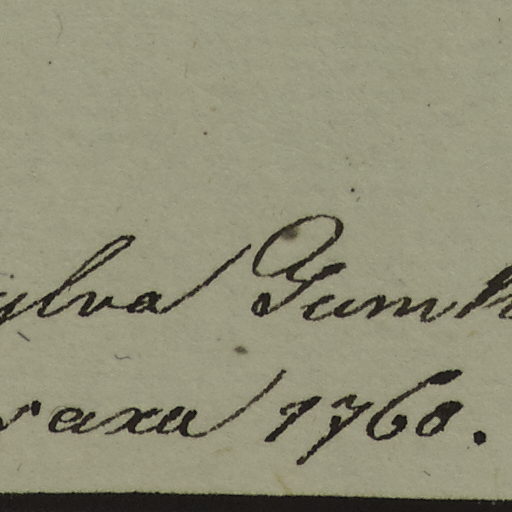 ylva Gumb
saxa 1760.